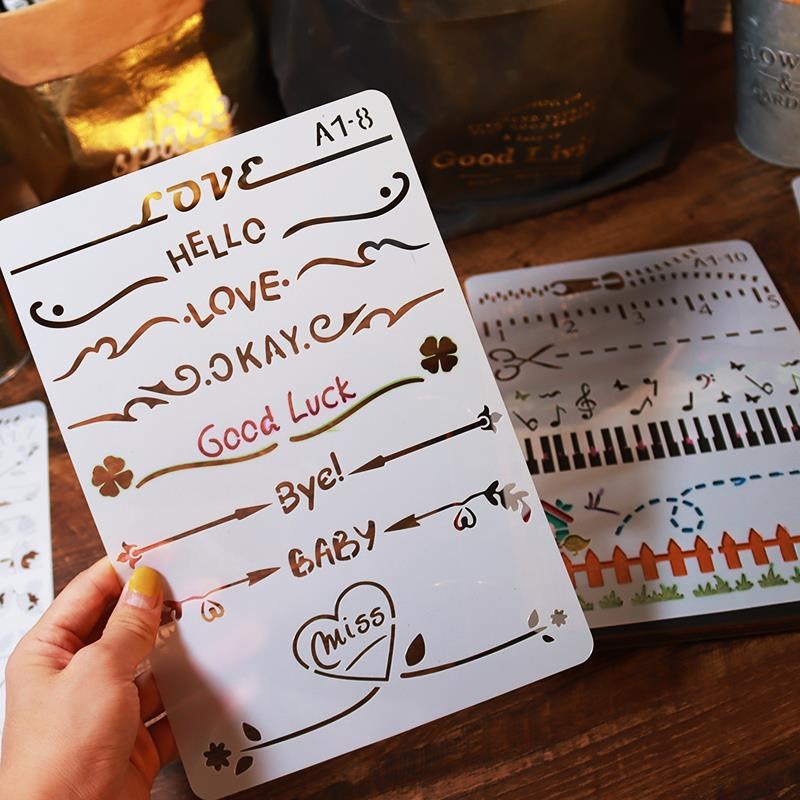 A1-8
LOVE
HELLO
·LOVE·
.OKAY.
Good Luck
Bye!
BABY
miss
A1-10
1 2 3 4 5
space
Good Livi
LOW
&
GARD